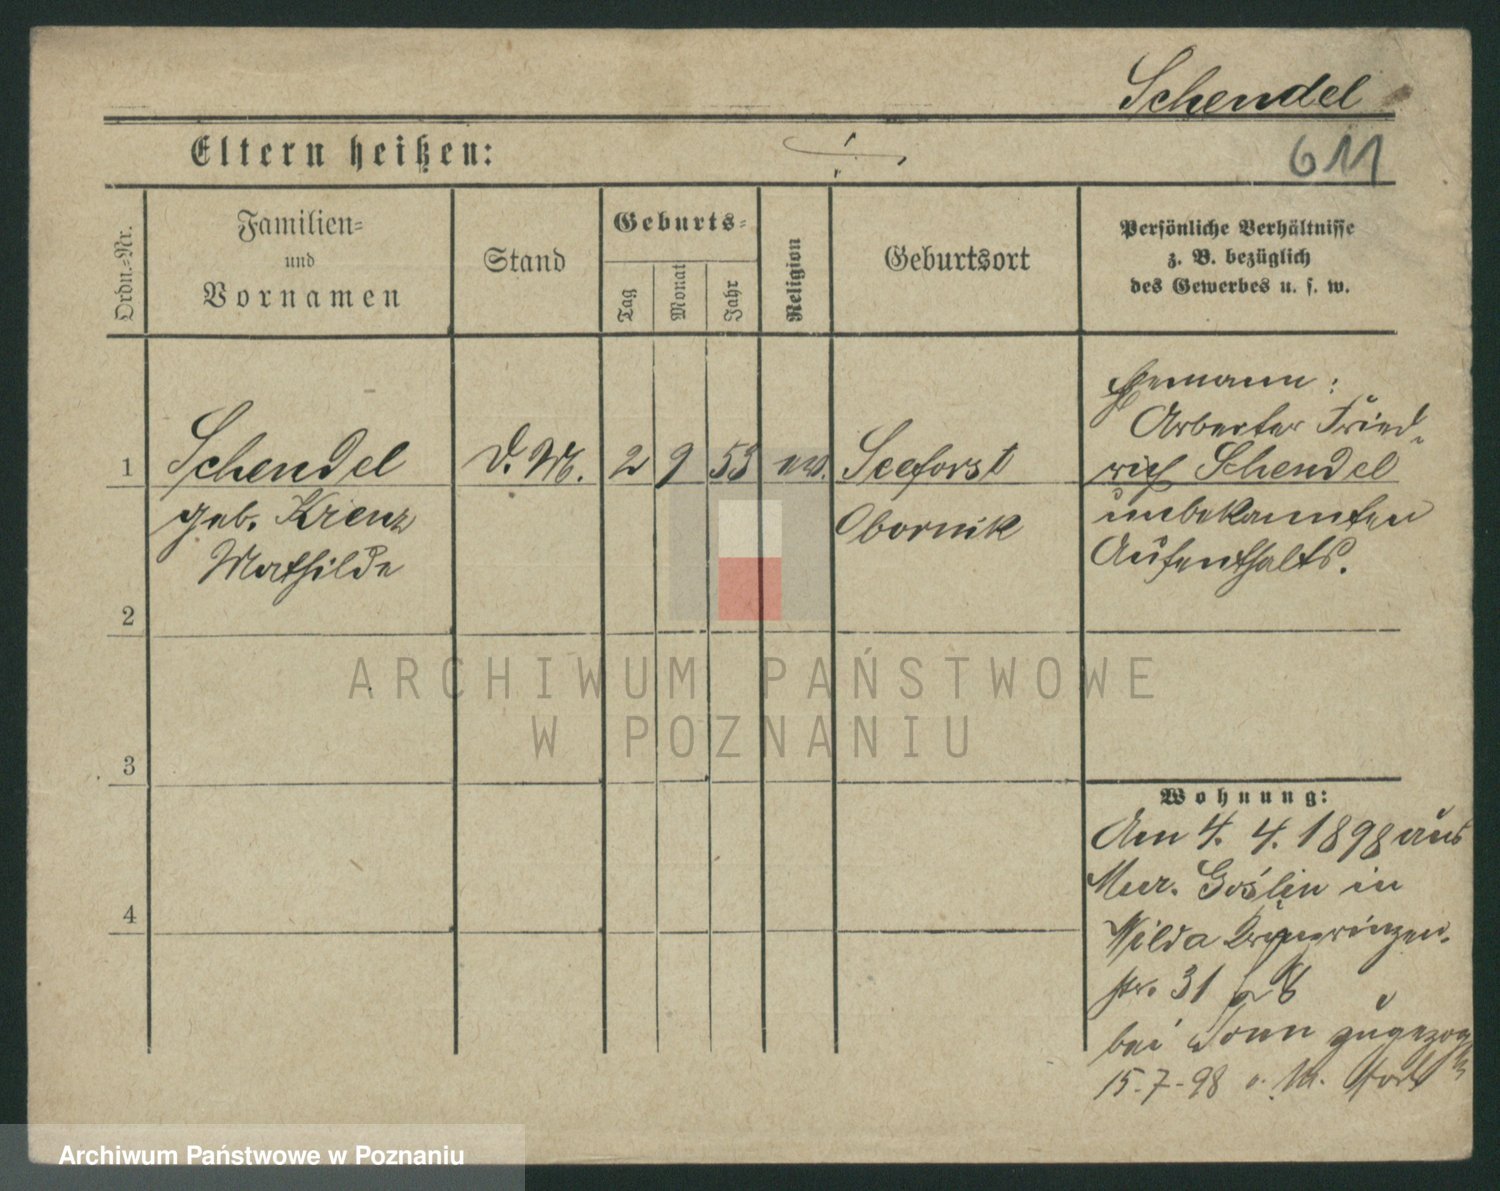 Schendel
Eltern heißen:
611
Ordn.-Nr.
Familien-
und
Vornamen
Stand
Geburts-
Tag
Monat
Jahr
Religion
Geburtsort
Persönliche Verhältnisse
z. B. bezüglich
des Gewerbes u. s. w.
1
Schendel
geb. Krenz
Mathilde
2 9 53
Seeforst
Obornik
Ehemann:
Arbeiter Fried-
rich Schendel
unbekannten
Aufenthalts.
2
3
4
Wohnung:
Am 4. 4. 1898 aus
Mur. Goślin in
Wilda Kronprinzen-
str. 31
bei zugezog
15.-7-98
ARCHIWUM PAŃSTWOWE
W POZNANIU
Archiwum Państwowe w Poznaniu